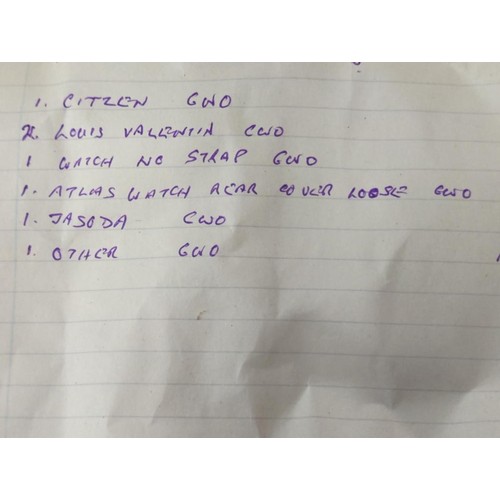 1. CITZEN GWO
2. LOUIS VALENTIN GWO
1 WATCH NO STRAP GWO
1. ATLAS WATCH REAR COVER LOOSE GWO
1. JASODA GWO
1. OTHER GWO